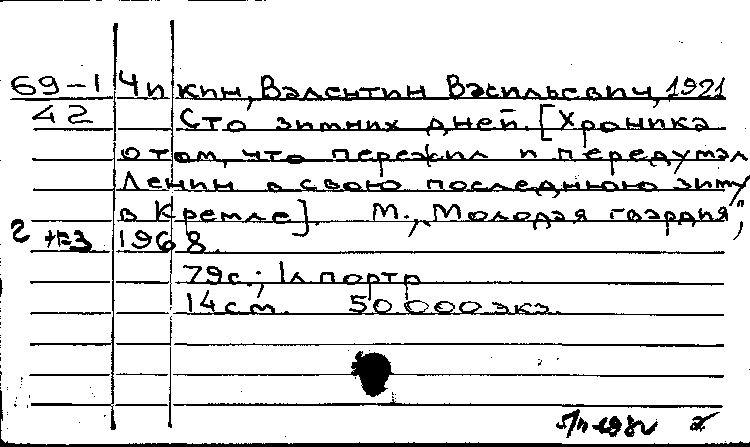 69-1 Чикин, Валентин Васильевич, 1921
42 Сто зимних дней. [Хроника
о том, что пережил и передумал
Ленин в свою последнюю зиму
в Кремле]. М., "Молодая гвардия",
1968.
79с.; 1л портр
14см. 50000экз.